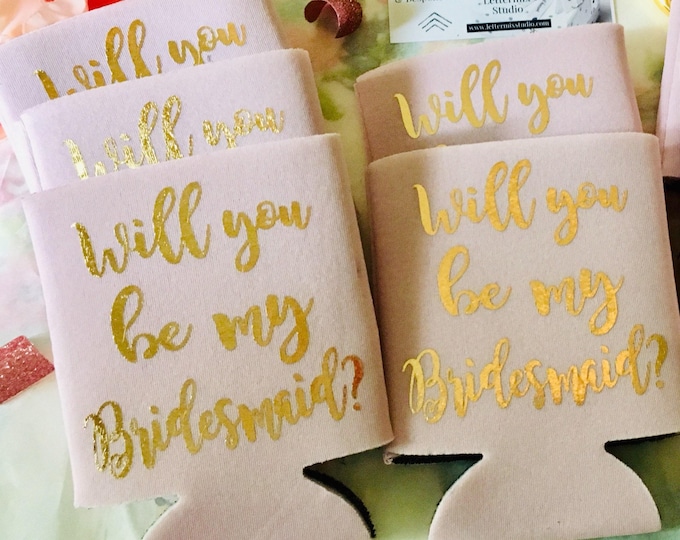 Lettermix Studio
www.lettermixstudio.com
Will you
Will you
Will you
be my
Bridesmaid?
Will you
Will you
be my
Bridesmaid?